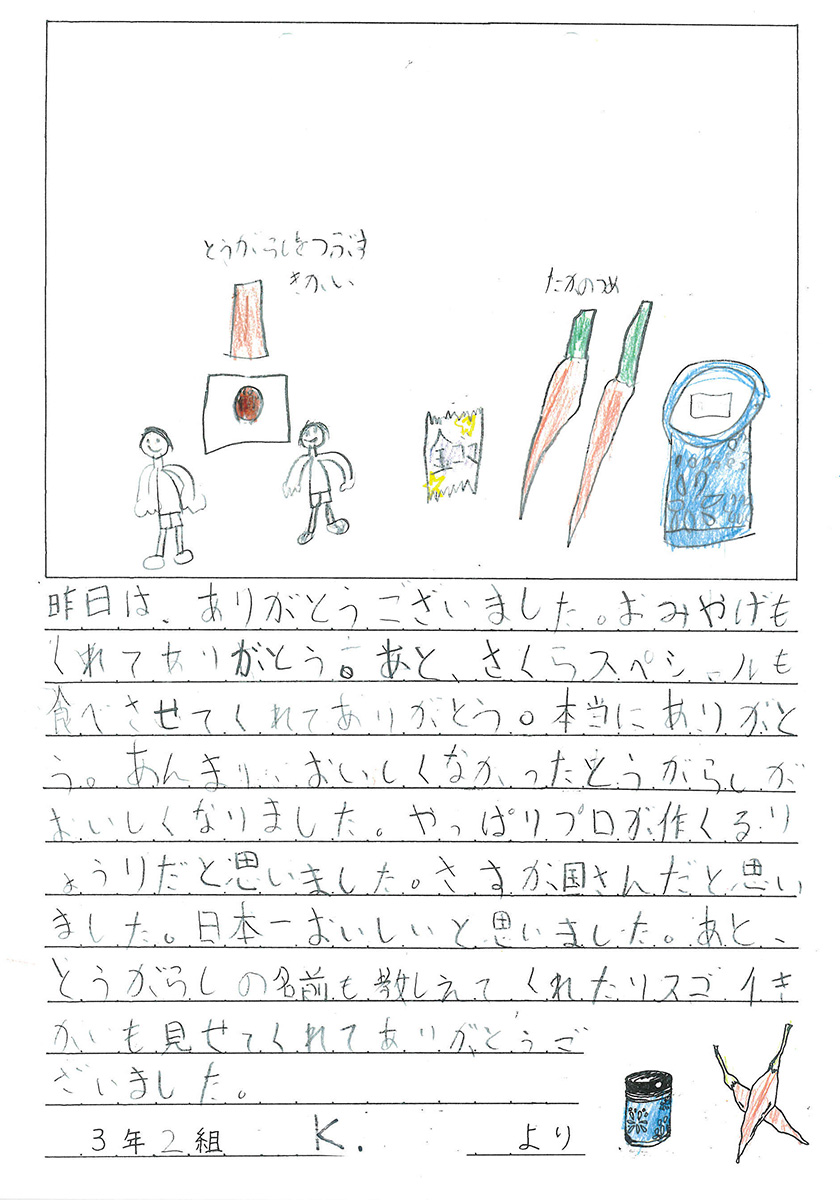 とうがらしをつぶす
きかい
たかのつめ
昨日は、ありがとうございました。おみやげも
くれてありがとう。あと、さくらスペシールも
食べさせてくれてありがとう。本当にありがと
う。あんまり、おいしくなかったとうがらしが
おいしくなりました。やっぱりプロが作くるり
ょうりだと思いました。さすが国さんだと思い
ました。日本一おいしいと思いました。あと、
とうがらしの名前も教しえてくれたりスゴイき
かいも見せてくれてありがとうご
ざいました。
3年2組 K. より